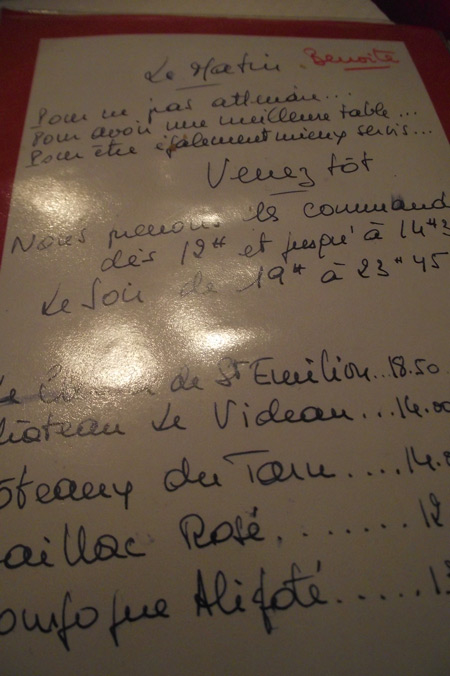 Le Matin Benoite
Pour ne pas attendre...
Pour avoir une meilleure table...
Pour être également mieux servis...
Venez tôt
Nous prenons les command
dès 12H et jusqu'à 14H3
Le Soir de 19H à 23H45
de St Emilion...18.50
hâteau Le Videau...14.00
ôteaux du Tarn....14.
aillac Rosé........12
ourgogne Aligoté.....13